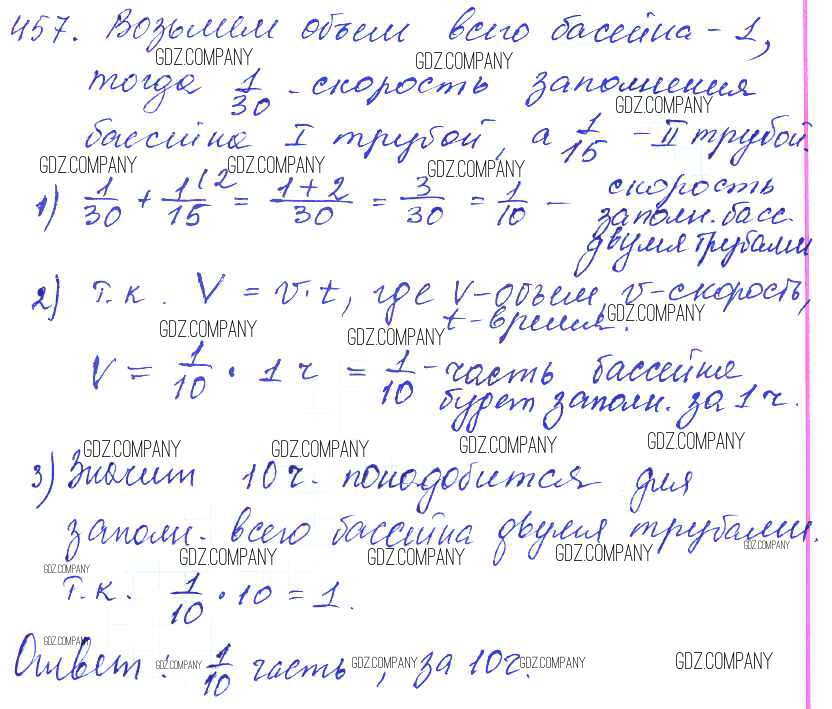 457. Возьмем объем всего бассейна - 1,
тогда 1/30 - скорость заполнения
бассейна I трубой, а 1/15 - II трубой.
1) 1/30 + 1/15 (2 = (1+2)/30 = 3/30 = 1/10 - скорость
заполн. басс.
двумя трубами
2) т.к. V = v·t, где V-объем, v-скорость,
t-время.
V = 1/10 · 1 ч = 1/10 - часть бассейна
будет заполн. за 1 ч.
3) Значит 10 ч. понадобится для
заполн. всего бассейна двумя трубами.
т.к. 1/10 · 10 = 1.
Ответ: 1/10 часть, за 10 ч.
GDZ.COMPANY GDZ.COMPANY
GDZ.COMPANY
GDZ.COMPANY GDZ.COMPANY GDZ.COMPANY
GDZ.COMPANY GDZ.COMPANY GDZ.COMPANY
GDZ.COMPANY GDZ.COMPANY GDZ.COMPANY GDZ.COMPANY
GDZ.COMPANY GDZ.COMPANY GDZ.COMPANY GDZ.COMPANY
GDZ.COMPANY
GDZ.COMPANY
GDZ.COMPANY GDZ.COMPANY GDZ.COMPANY GDZ.COMPANY